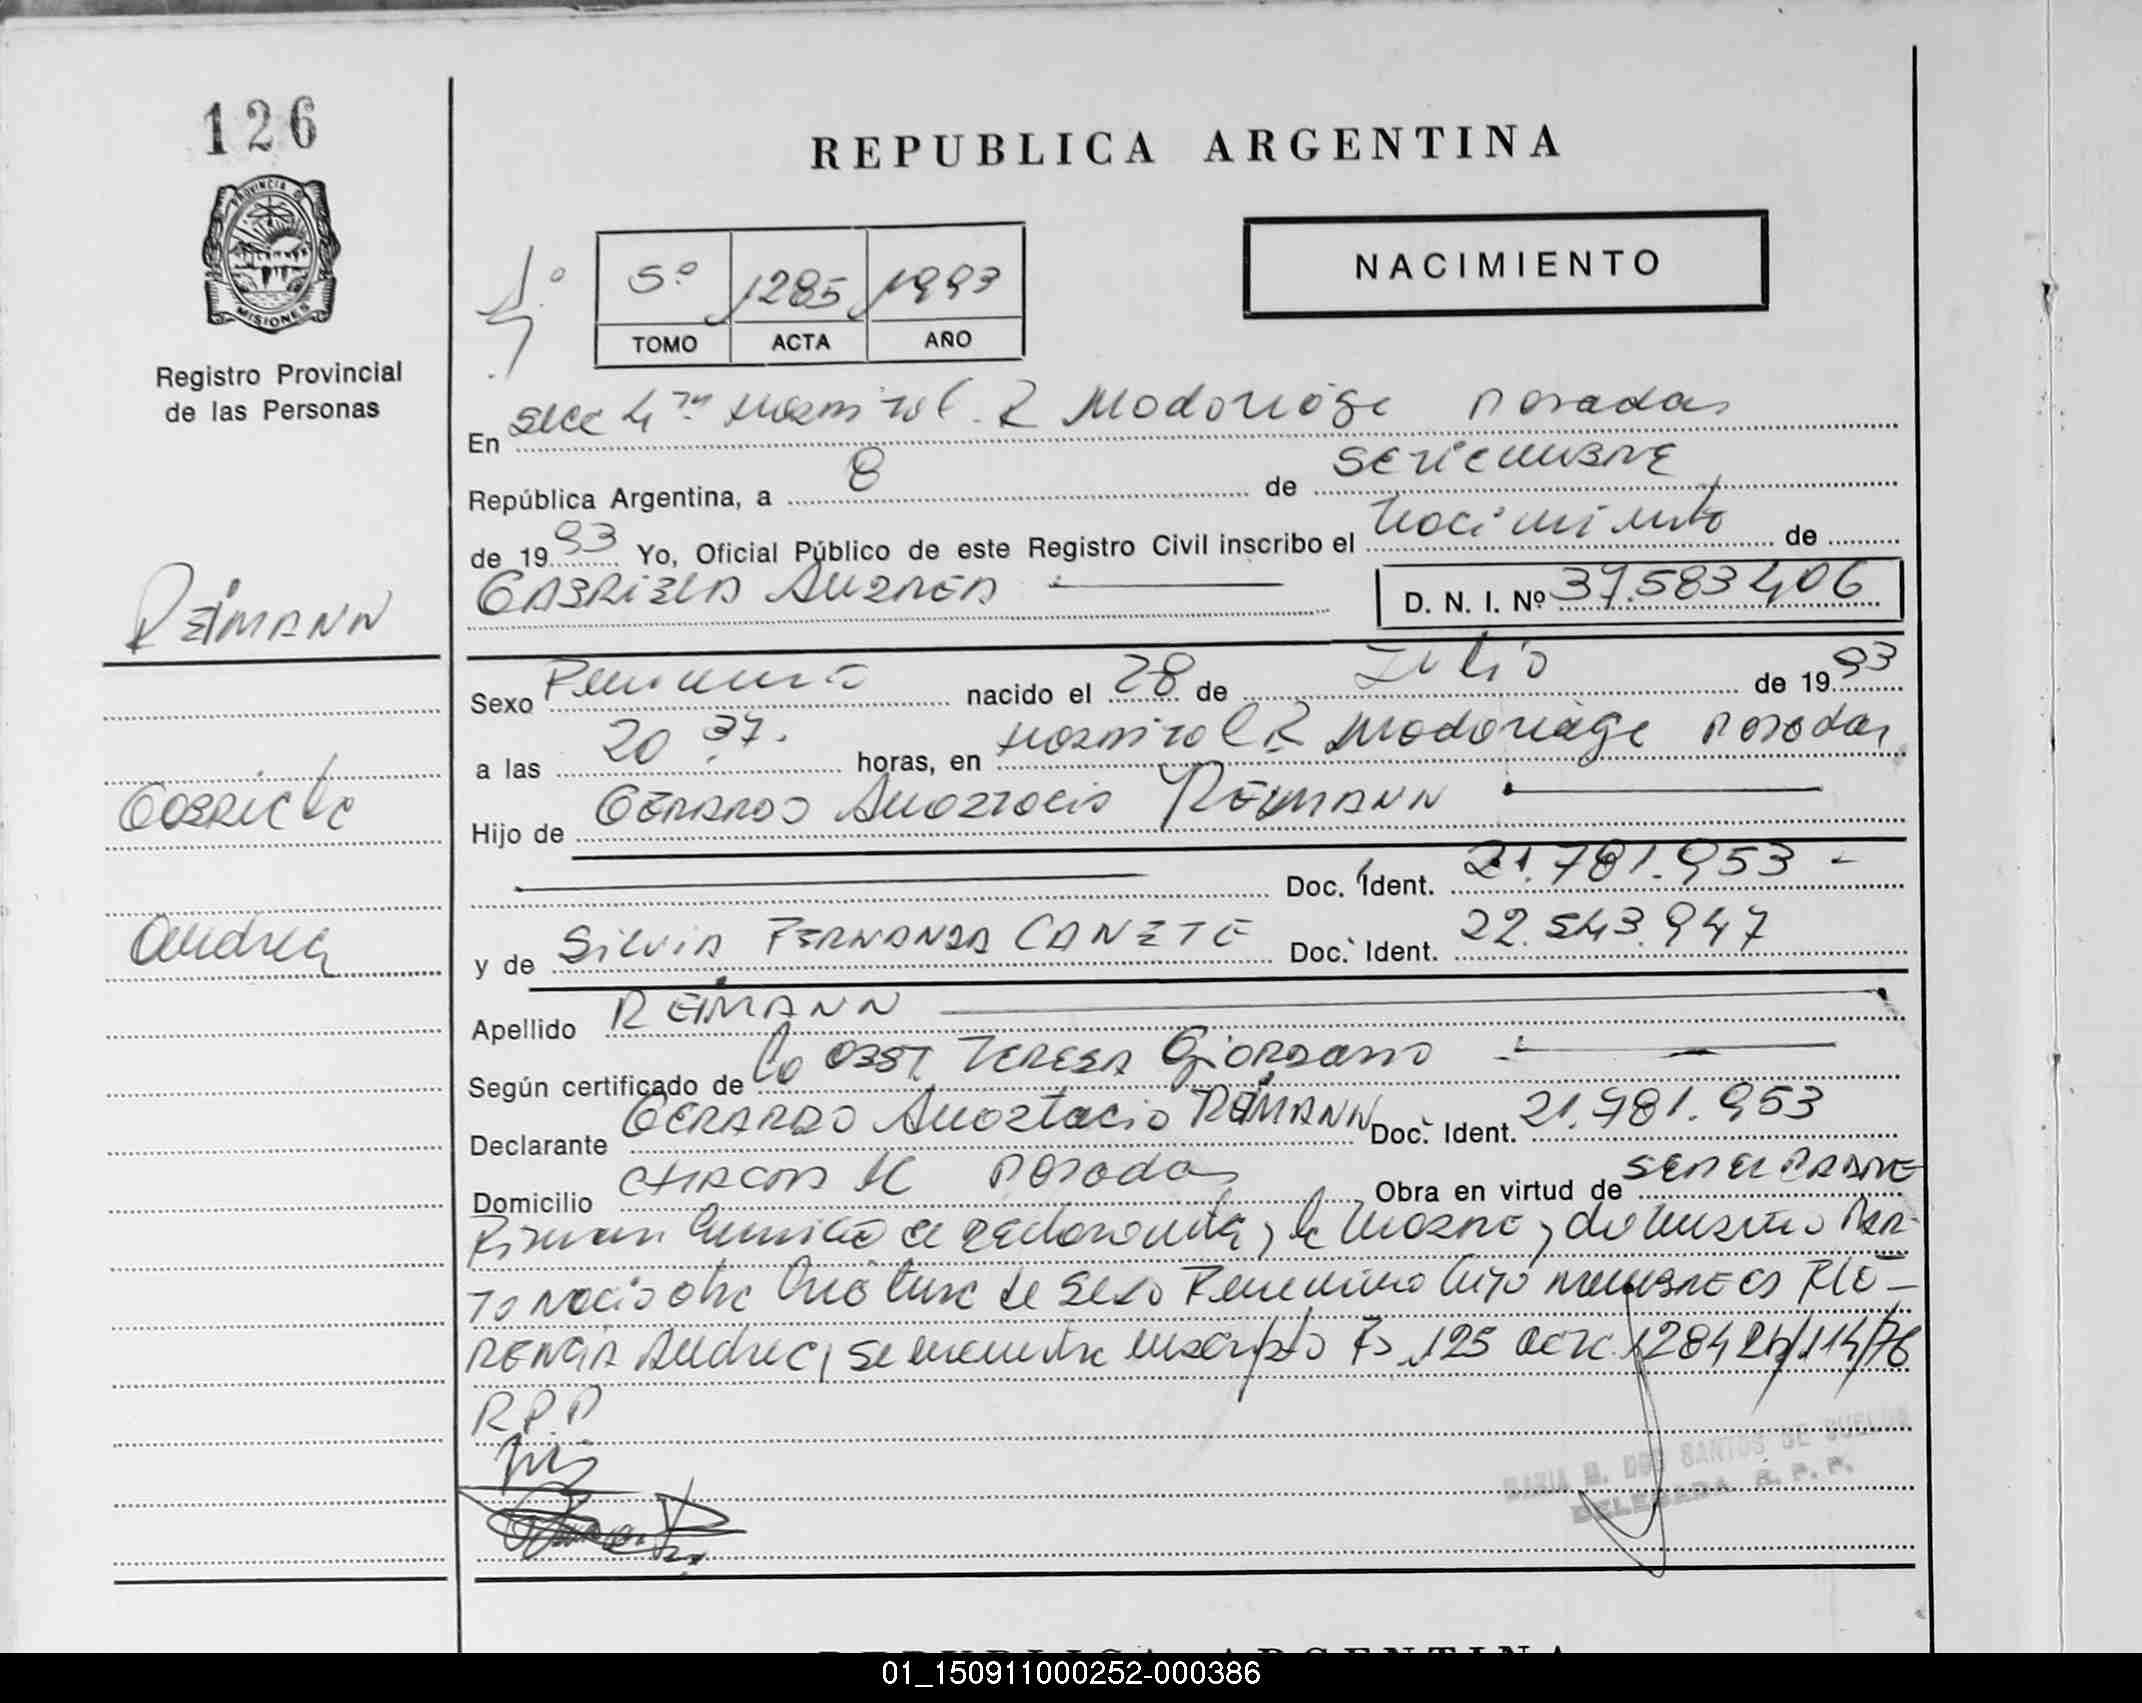 126
PROVINCIA DE
MISIONES
Registro Provincial
de las Personas
REPUBLICA ARGENTINA
NACIMIENTO
5º 1285 1993
TOMO ACTA AÑO
En Secc 4ta Hospital R Madariaga Posadas
República Argentina, a 8 de SETIEMBRE
de 1993 Yo, Oficial Público de este Registro Civil inscribo el nacimiento de
GABRIELA ANDREA D. N. I. Nº 37.583406
REIMANN
Sexo Femenino nacido el 28 de Julio de 1993
a las 20 37. horas, en Hospital R Madariaga Posadas
Gabriela
Hijo de GERARDO Anastacio REIMANN
Doc. Ident. 21.781.953 -
Andrea
y de Silvia FERNANDA CANETE Doc. Ident. 22.543.947
Apellido REIMANN
Según certificado de la OBST TERESA Giordano
Declarante GERARDO Anastacio REIMANN Doc. Ident. 21.781.953
Domicilio CHACRA Posadas Obra en virtud de SER EL PADRE
Firman la madre, del mismo PAR-
TO Nacio otra criatura de sexo Femenino cuyo NOMBRE es FLO-
RENCIA Andrea, se encuentra inscripto Fs 125 acta 1284 114/76
R.P.P
MARIA M. DOS SANTOS DE
DELEGADA R. P. P.
REPUBLICA ARGENTINA
01_150911000252-000386